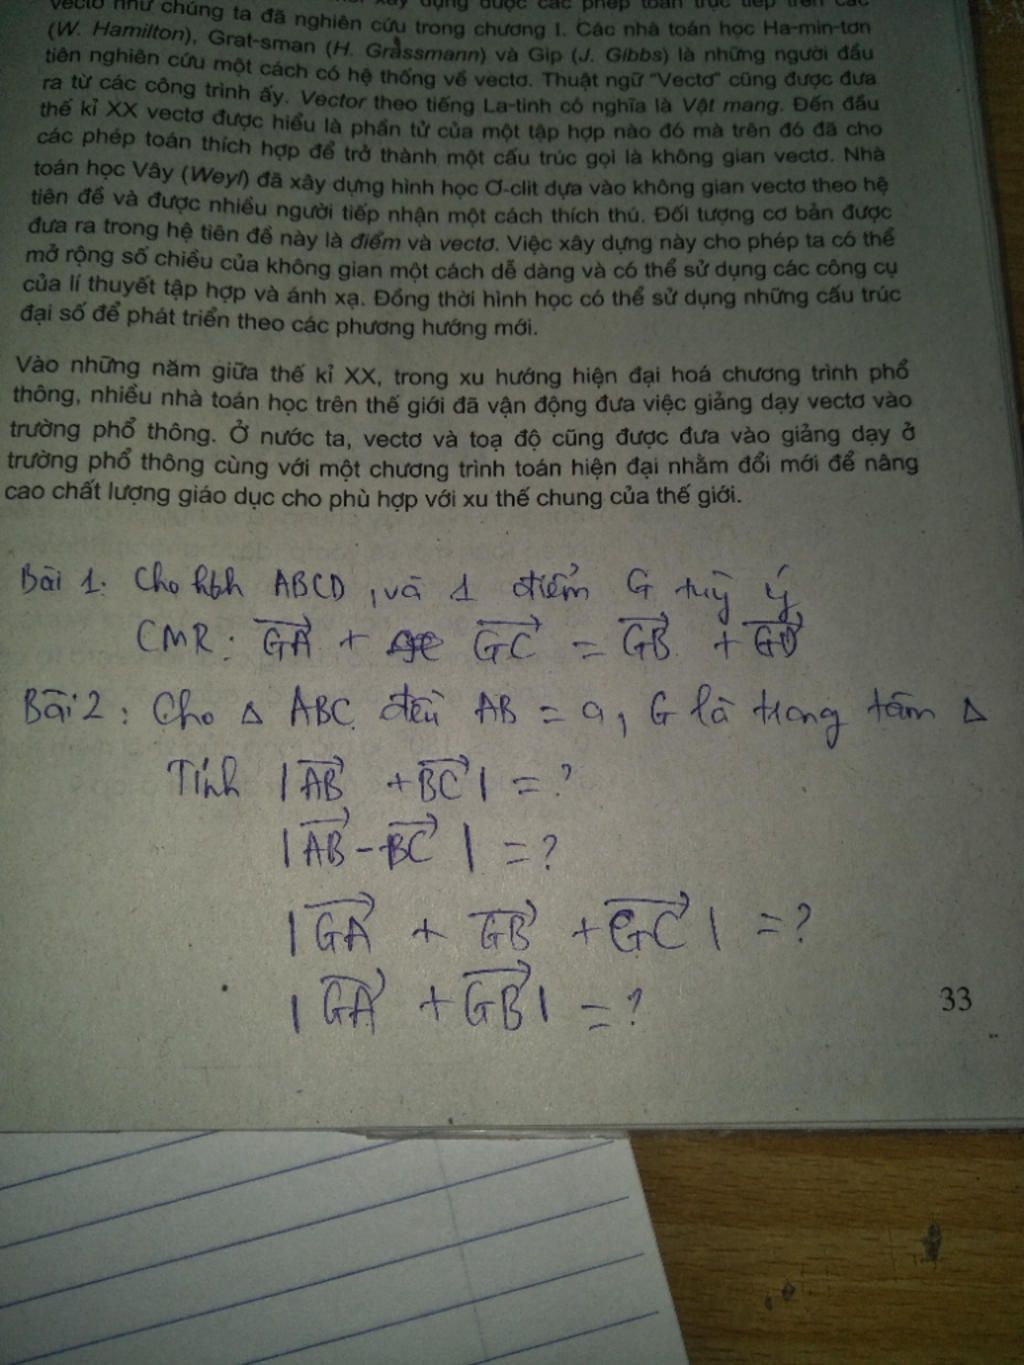 vectơ như chúng ta đã nghiên cứu trong chương I. Các nhà toán học Ha-min-tơn
(W. Hamilton), Grat-sman (H. Grassmann) và Gip (J. Gibbs) là những người đầu
tiên nghiên cứu một cách có hệ thống về vectơ. Thuật ngữ “Vectơ” cũng được đưa
ra từ các công trình ấy. Vector theo tiếng La-tinh có nghĩa là Vật mang. Đến đầu
thế kỉ XX vectơ được hiểu là phần tử của một tập hợp nào đó mà trên đó đã cho
các phép toán thích hợp để trở thành một cấu trúc gọi là không gian vectơ. Nhà
toán học Vây (Weyl) đã xây dựng hình học Ơ-clit dựa vào không gian vectơ theo hệ
tiên đề và được nhiều người tiếp nhận một cách thích thú. Đối tượng cơ bản được
đưa ra trong hệ tiên đề này là điểm và vectơ. Việc xây dựng này cho phép ta có thể
mở rộng số chiều của không gian một cách dễ dàng và có thể sử dụng các công cụ
của lí thuyết tập hợp và ánh xạ. Đồng thời hình học có thể sử dụng những cấu trúc
đại số để phát triển theo các phương hướng mới.
Vào những năm giữa thế kỉ XX, trong xu hướng hiện đại hoá chương trình phổ
thông, nhiều nhà toán học trên thế giới đã vận động đưa việc giảng dạy vectơ vào
trường phổ thông. Ở nước ta, vectơ và toạ độ cũng được đưa vào giảng dạy ở
trường phổ thông cùng với một chương trình toán hiện đại nhằm đổi mới để nâng
cao chất lượng giáo dục cho phù hợp với xu thế chung của thế giới.
Bài 1: Cho hbh ABCD, và 1 điểm G tuỳ ý
CMR: GA + GC = GB + GD
Bài 2: Cho Δ ABC đều AB = a, G là trọng tâm Δ
Tính |AB + BC| = ?
|AB - BC| = ?
|GA + GB + GC| = ?
|GA + GB| = ?
33